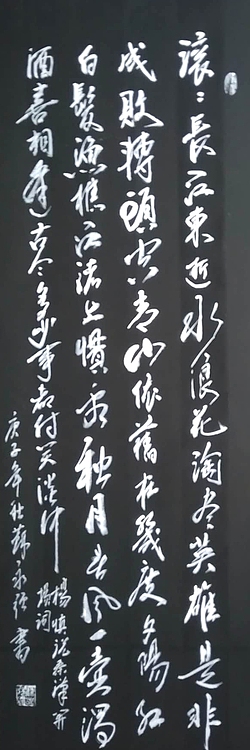 滚〻長江東逝水浪花淘尽英雄是非
成敗轉頭空青山依舊在幾度夕陽紅
白髮漁樵江渚上慣看秋月春風一壺濁
酒喜相逢古今多少事都付笑談中
楊慎說秦漢開
場词
庚子年秋蘇永書